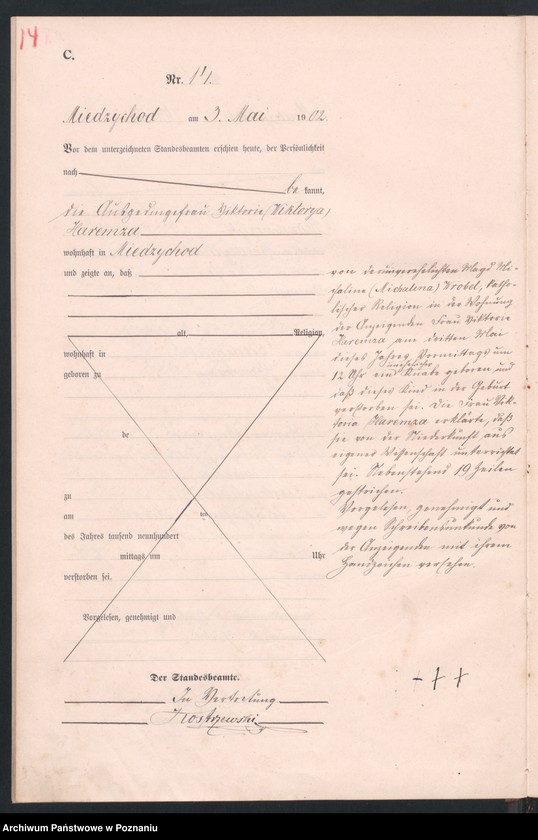 14
C.
Nr. 14.
Miedzychod am 3. Mai 1902
Vor dem unterzeichneten Standesbeamten erschien heute, der Persönlichkeit
nach be kannt,
die Viktorie (Viktorya)
Haremza
wohnhaft in Miedzychod
und zeigte an, daß
von der unverehelichten Magd Mi-
chaline (Michalina) Wrobel, katho-
lischer Religion in der Wohnung
der Anzeigenden Frau Viktorie
Haremza am dritten Mai
dieses Jahres Vormittags um
12 Uhr ein unehelicher Knabe geboren und
daß dieses Kind in der Geburt
verstorben sei. Die Frau Vik-
toria Haremza erklärte, daß
sie von der Niederkunft aus
eigener Wissenschaft unterrichtet
sei. Nebenstehend 19 Zeilen
gestrichen.
Vorgelesen, genehmigt und
wegen Schreibensunkunde von
der Anzeigenden mit ihrem
Handzeichen versehen.
+++
alt, Religion,
wohnhaft in
geboren zu
de
zu
am ten
des Jahres tausend neunhundert
mittags um Uhr
verstorben sei.
Vorgelesen, genehmigt und
Der Standesbeamte.
In Vertretung
Kostrzewski
Archiwum Państwowe w Poznaniu